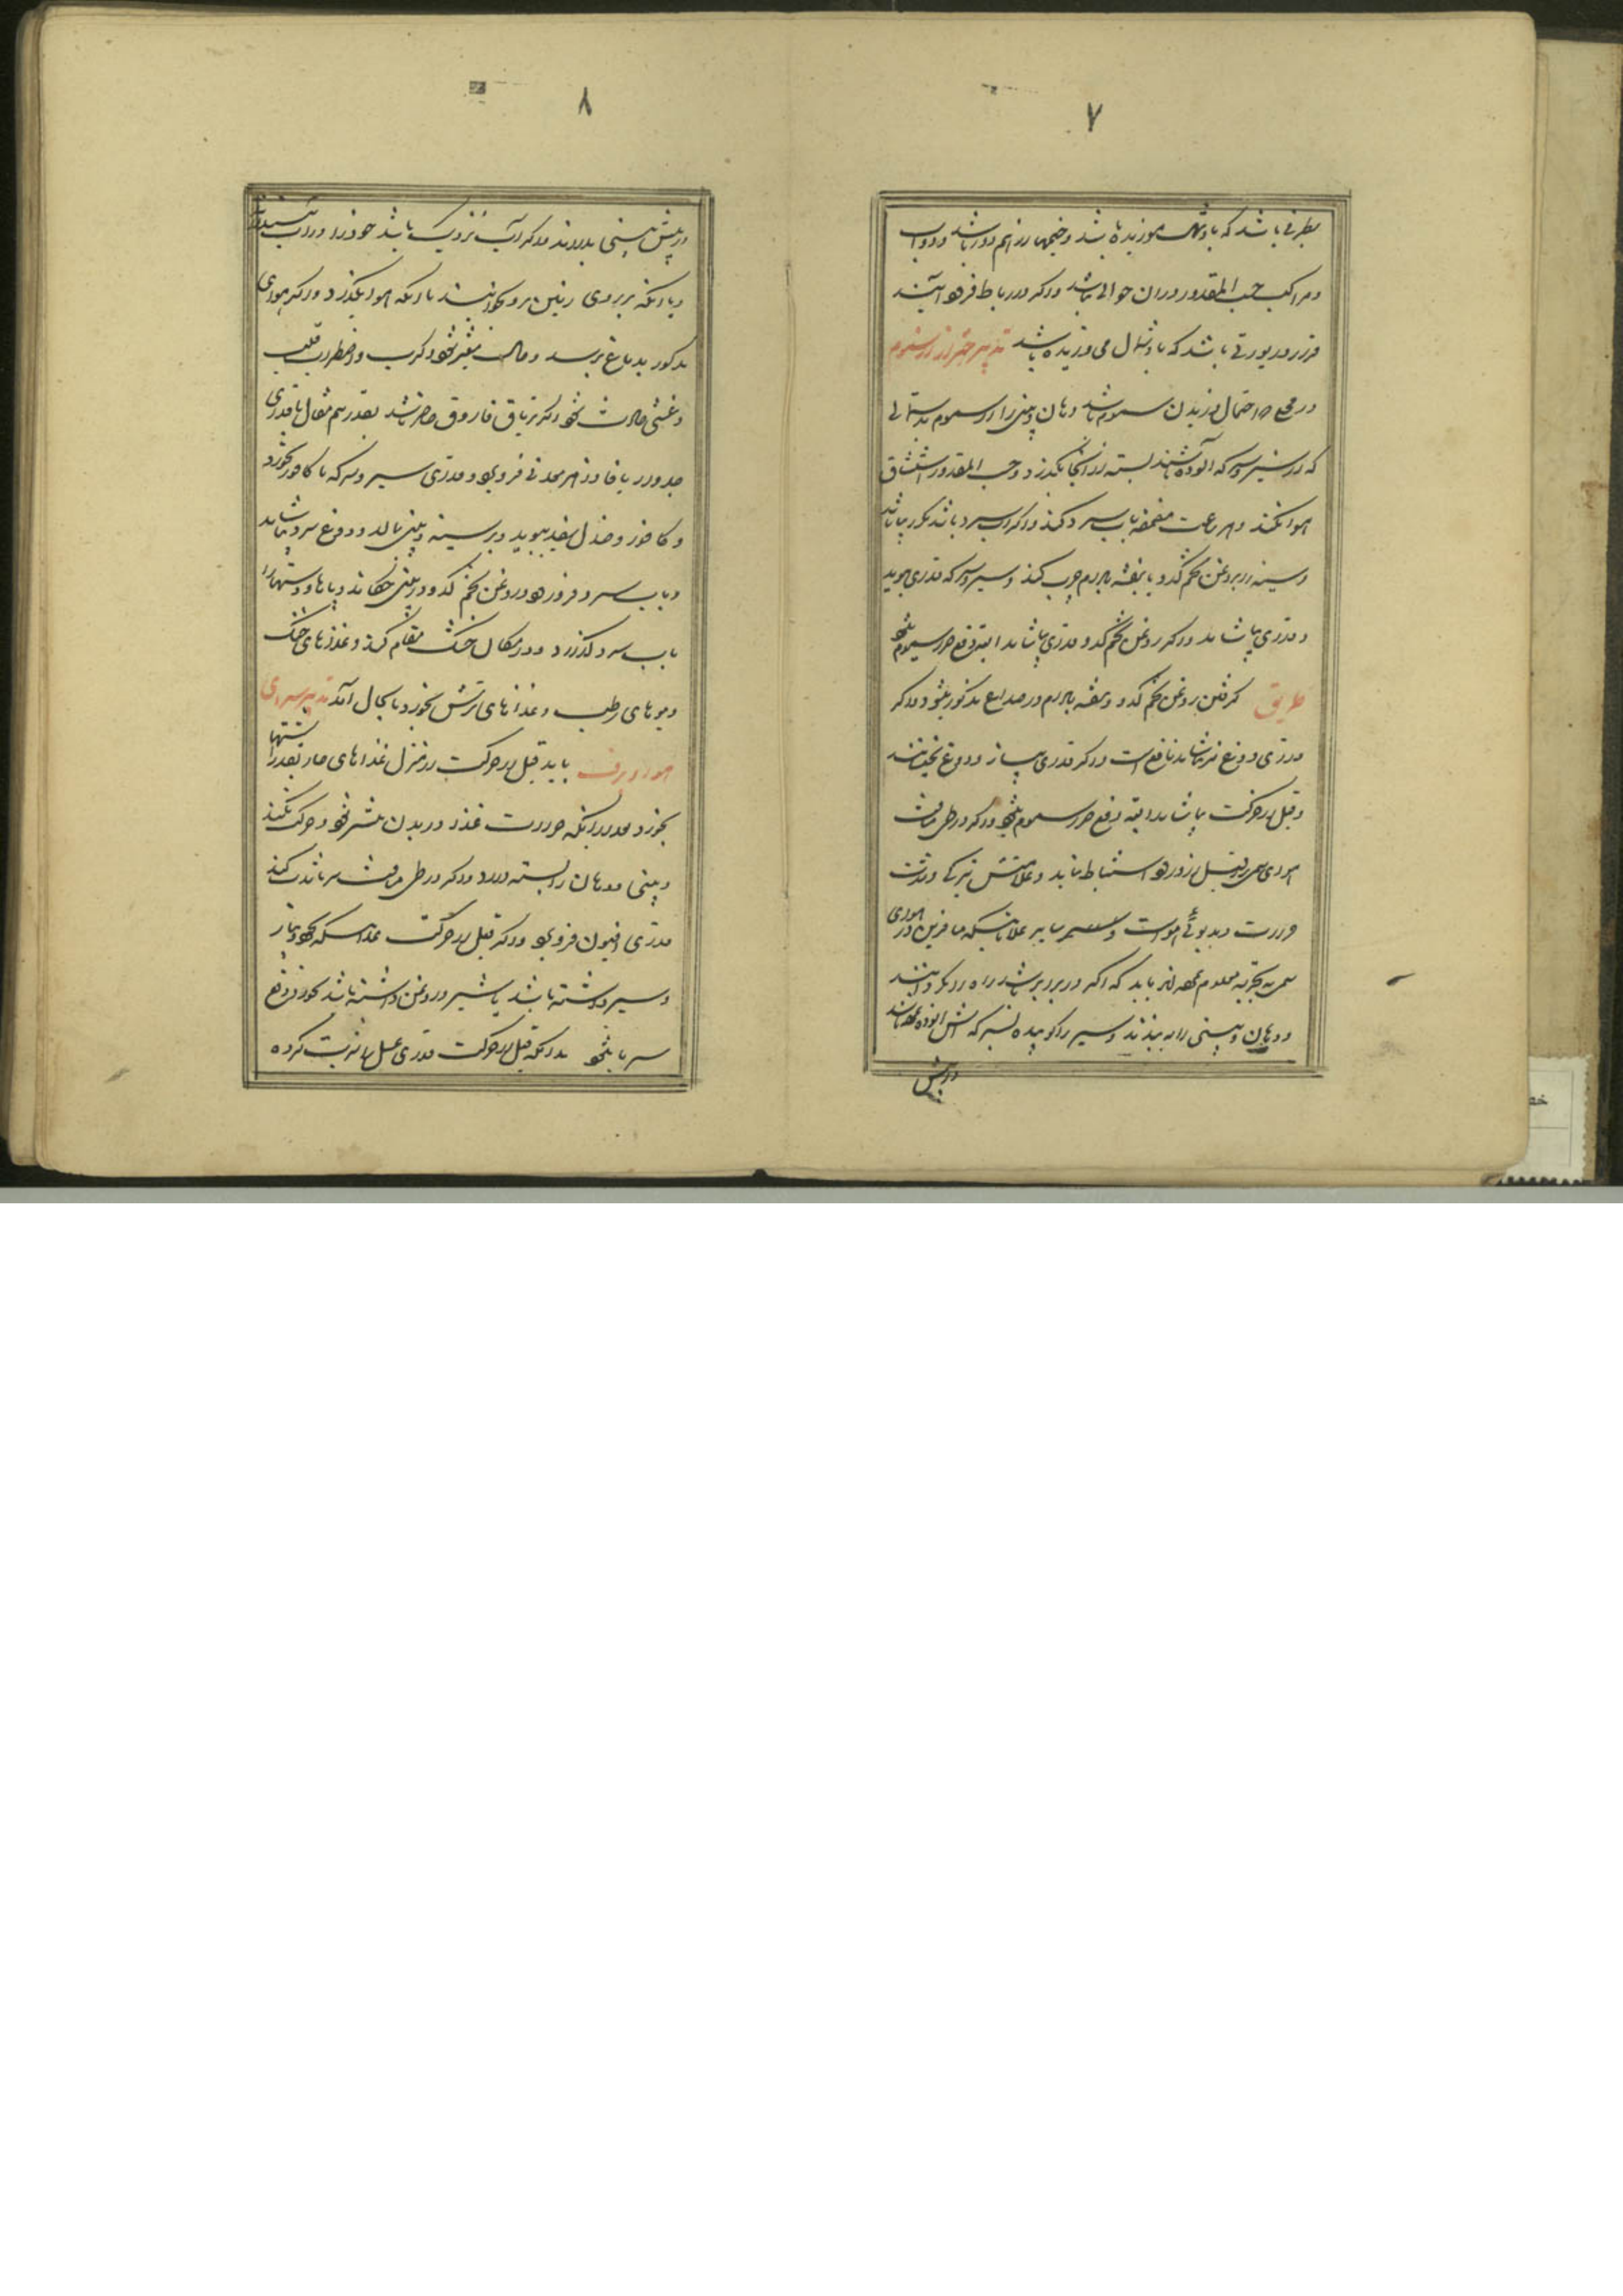 ۷
بطرفی باشد که باد شمال بوزیده باشد و خیمها از هم دور باشد و دواب
و مراکب حسب المقدور در آن حوالی نباشد و اگر در رباط فرود آیند
قرار در بورتی باشد که باد شمال می وزیده باشد تدبیر احتراز از سموم
در احتمال وزیدن سموم باشد دهان و بینی را از سموم بدستمالی
که از سیر و سرکه آلوده باشند بسته از آنجا بگذرد و حسب المقدور استنشاق
هوا نکند و هر ساعت مضمضه بآب سرد کند و اگر آب سرد باشد مکرر بیاشامد
و سینه را بروغن تخم کدو یا بنفشه بادام چرب کند و سیر و سرکه قدری ببوید
و قدری بیاشامد و اگر روغن تخم کدو قدری بیاشامد البته دفع ضرر سموم بشود
طریق گرفتن روغن تخم کدو و بنفشه بادام در صداع مذکور بشود و اگر
قدری دوغ نیز بیاشامد نافع است و اگر قدری پیاز در دوغ بخیسانند
و قبل از حرکت بیاشامد البته دفع ضرر سموم بشود و اگر در طی مسافت
هوای سمی قبل از ورود استنباط نماید و علامتش تیرگی و شدت
حرارت و بدبوئی هواست و سایر علاماتیکه مسافرین از هوای
سمی بتجربه معلوم نموده اند باید که اگر در برابر باشد راه را بگردانند
و دهان و بینی را ببندند و سیر را کوبیده بسرکه اش آلوده نموده باشند
در پیش
۸
در پیش بینی بدارند و اگر آب نزدیک باشد خود را در آب بیندازند
و یا آنکه بر روی زمین برو بخوابند تا آنکه هوا بگذرد و اگر هوای
مذکور بدماغ برسد و حالت متغیر بشود و کرب و اضطراب قلب
و غشی حادث شود اگر تریاق فاروق حاضر باشد بقدر نیم مثقال با قدری
جدوار یا فادزهر معدنی فرو برد و قدری سیر و سرکه با کافور بخورد
و کافور و صندل سفید ببوید و بر سینه و بینی بمالد و دوغ سرد بیاشامد
و بآب سرد فرو رود و روغن تخم کدو در بینی چکاند و پاها و دستها را
بآب سرد گذارد و در مکان خنک مقام کند و غذاهای خنک
و میوهای رطب و غذاهای ترش بخورد تا بحال آید تدبیر سرمای
هوا و برف باید قبل از حرکت از منزل غذاهای حار بقدر اشتها
بخورد و بعد از آنکه حرارت غذا در بدن منتشر شود حرکت بکند
و بینی و دهان را بسته دارد و اگر در طی مسافت سرما شدت کند
قدری افیون فرو برد و اگر قبل از حرکت غذائیکه پیاز
و سیر داشته باشد یا شیر و روغن داشته باشد بخورد دفع
سرما بشود بعد از آنکه قبل از حرکت قدری عسل را شربت کرده